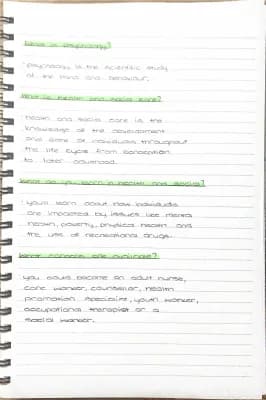 What is Psychology?
psychology is the scientific study
of the mind and behaviour.
What is health and social care?
health and social care is the
knowledge of the development
and care of individuals throughout
the life cycle from conception
to later adulthood.
What do you learn in health and social?
you'll learn about how individuals
are impacted by issues like mental
health, poverty, physical health and
the use of recreational drugs.
What careers are available?
you could become an adult nurse,
care worker, counsellor, health
promotion specialist, youth worker,
occupational therapist or a
social worker.